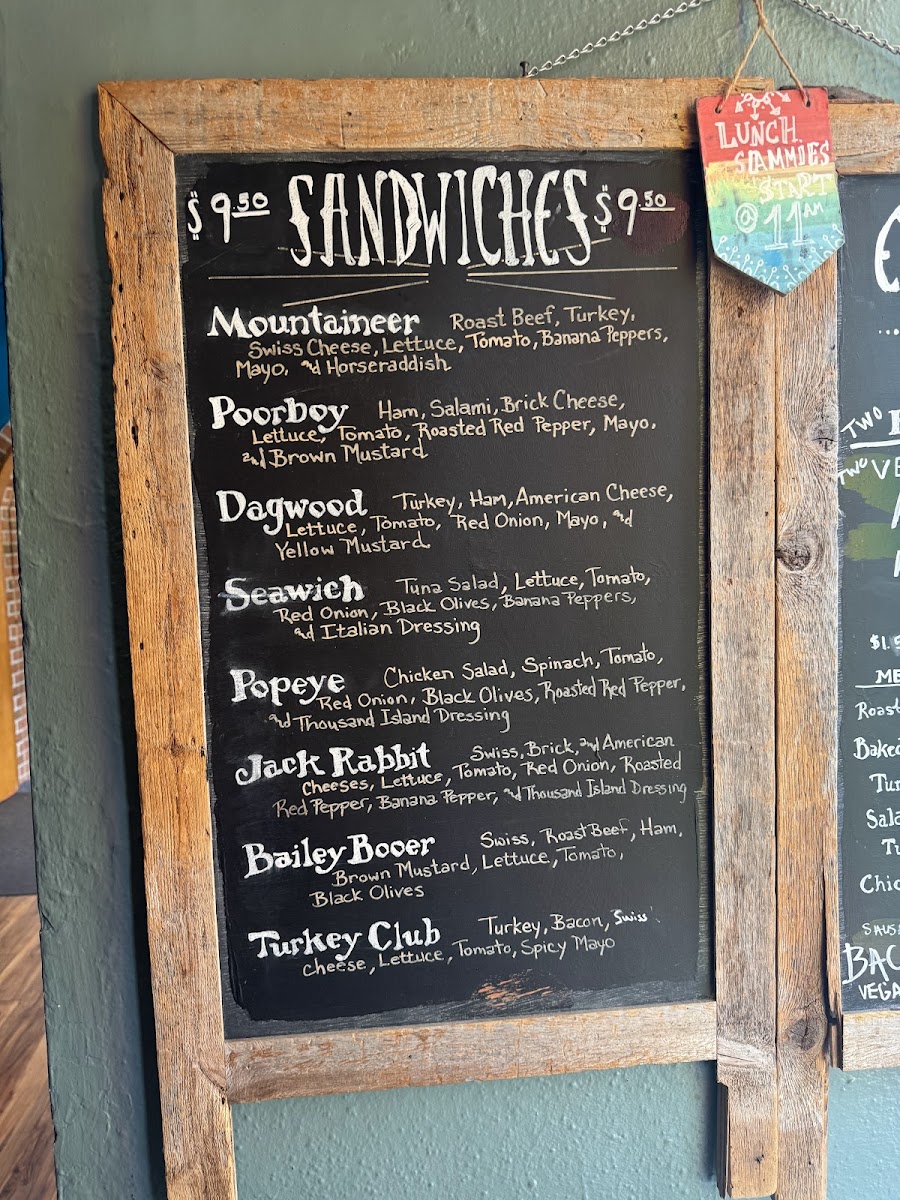 LUNCH
SAMMIES
START
@ 11AM
$9.50 SANDWICHES $9.50
Mountaineer Roast Beef, Turkey,
Swiss Cheese, Lettuce, Tomato, Banana Peppers,
Mayo, and Horseraddish
Poorboy Ham, Salami, Brick Cheese,
Lettuce, Tomato, Roasted Red Pepper, Mayo,
and Brown Mustard
Dagwood Turkey, Ham, American Cheese,
Lettuce, Tomato, Red Onion, Mayo, and
Yellow Mustard
Seawich Tuna Salad, Lettuce, Tomato,
Red Onion, Black Olives, Banana Peppers,
and Italian Dressing
Popeye Chicken Salad, Spinach, Tomato,
Red Onion, Black Olives, Roasted Red Pepper,
and Thousand Island Dressing
Jack Rabbit Swiss, Brick, and American
Cheeses, Lettuce, Tomato, Red Onion, Roasted
Red Pepper, Banana Pepper, and Thousand Island Dressing
Bailey Booer Swiss, Roast Beef, Ham,
Brown Mustard, Lettuce, Tomato,
Black Olives
Turkey Club Turkey, Bacon, Swiss
cheese, Lettuce, Tomato, Spicy Mayo
TWO
TWO VE
$1.5
ME
Roast
Baked
Tur
Sala
Tu
Chic
SAUSA
BAC
VEGA